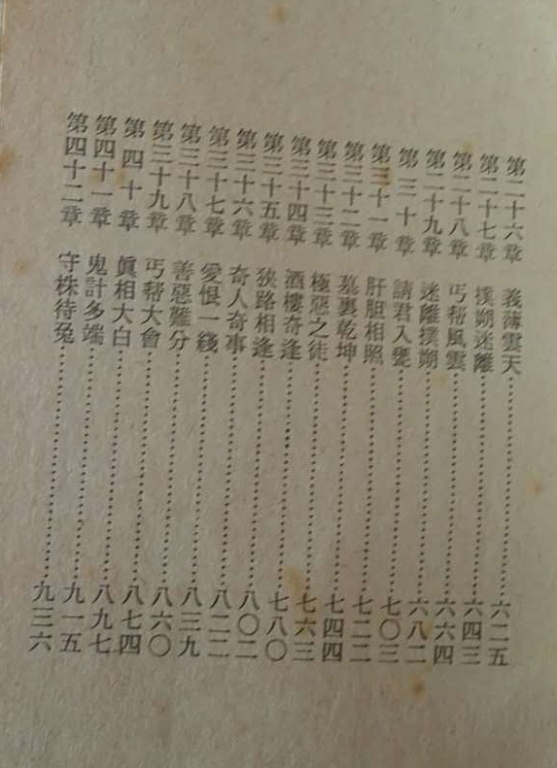 第二十六章 義薄雲天⋯⋯⋯⋯⋯⋯⋯⋯六二五
第二十七章 撲朔迷離⋯⋯⋯⋯⋯⋯⋯⋯六四三
第二十八章 丐帮風雲⋯⋯⋯⋯⋯⋯⋯⋯六六四
第二十九章 迷離撲朔⋯⋯⋯⋯⋯⋯⋯⋯六八二
第三十章 請君入甕⋯⋯⋯⋯⋯⋯⋯⋯七〇三
第三十一章 肝胆相照⋯⋯⋯⋯⋯⋯⋯⋯七二二
第三十二章 墓裏乾坤⋯⋯⋯⋯⋯⋯⋯⋯七四四
第三十三章 極惡之徒⋯⋯⋯⋯⋯⋯⋯⋯七六三
第三十四章 酒樓奇逢⋯⋯⋯⋯⋯⋯⋯⋯七八〇
第三十五章 狹路相逢⋯⋯⋯⋯⋯⋯⋯⋯八〇二
第三十六章 奇人奇事⋯⋯⋯⋯⋯⋯⋯⋯八二二
第三十七章 愛恨一綫⋯⋯⋯⋯⋯⋯⋯⋯八三九
第三十八章 善惡難分⋯⋯⋯⋯⋯⋯⋯⋯八六〇
第三十九章 丐帮大會⋯⋯⋯⋯⋯⋯⋯⋯八七四
第四十章 眞相大白⋯⋯⋯⋯⋯⋯⋯⋯八九七
第四十一章 鬼計多端⋯⋯⋯⋯⋯⋯⋯⋯九一五
第四十二章 守株待兔⋯⋯⋯⋯⋯⋯⋯⋯九三六